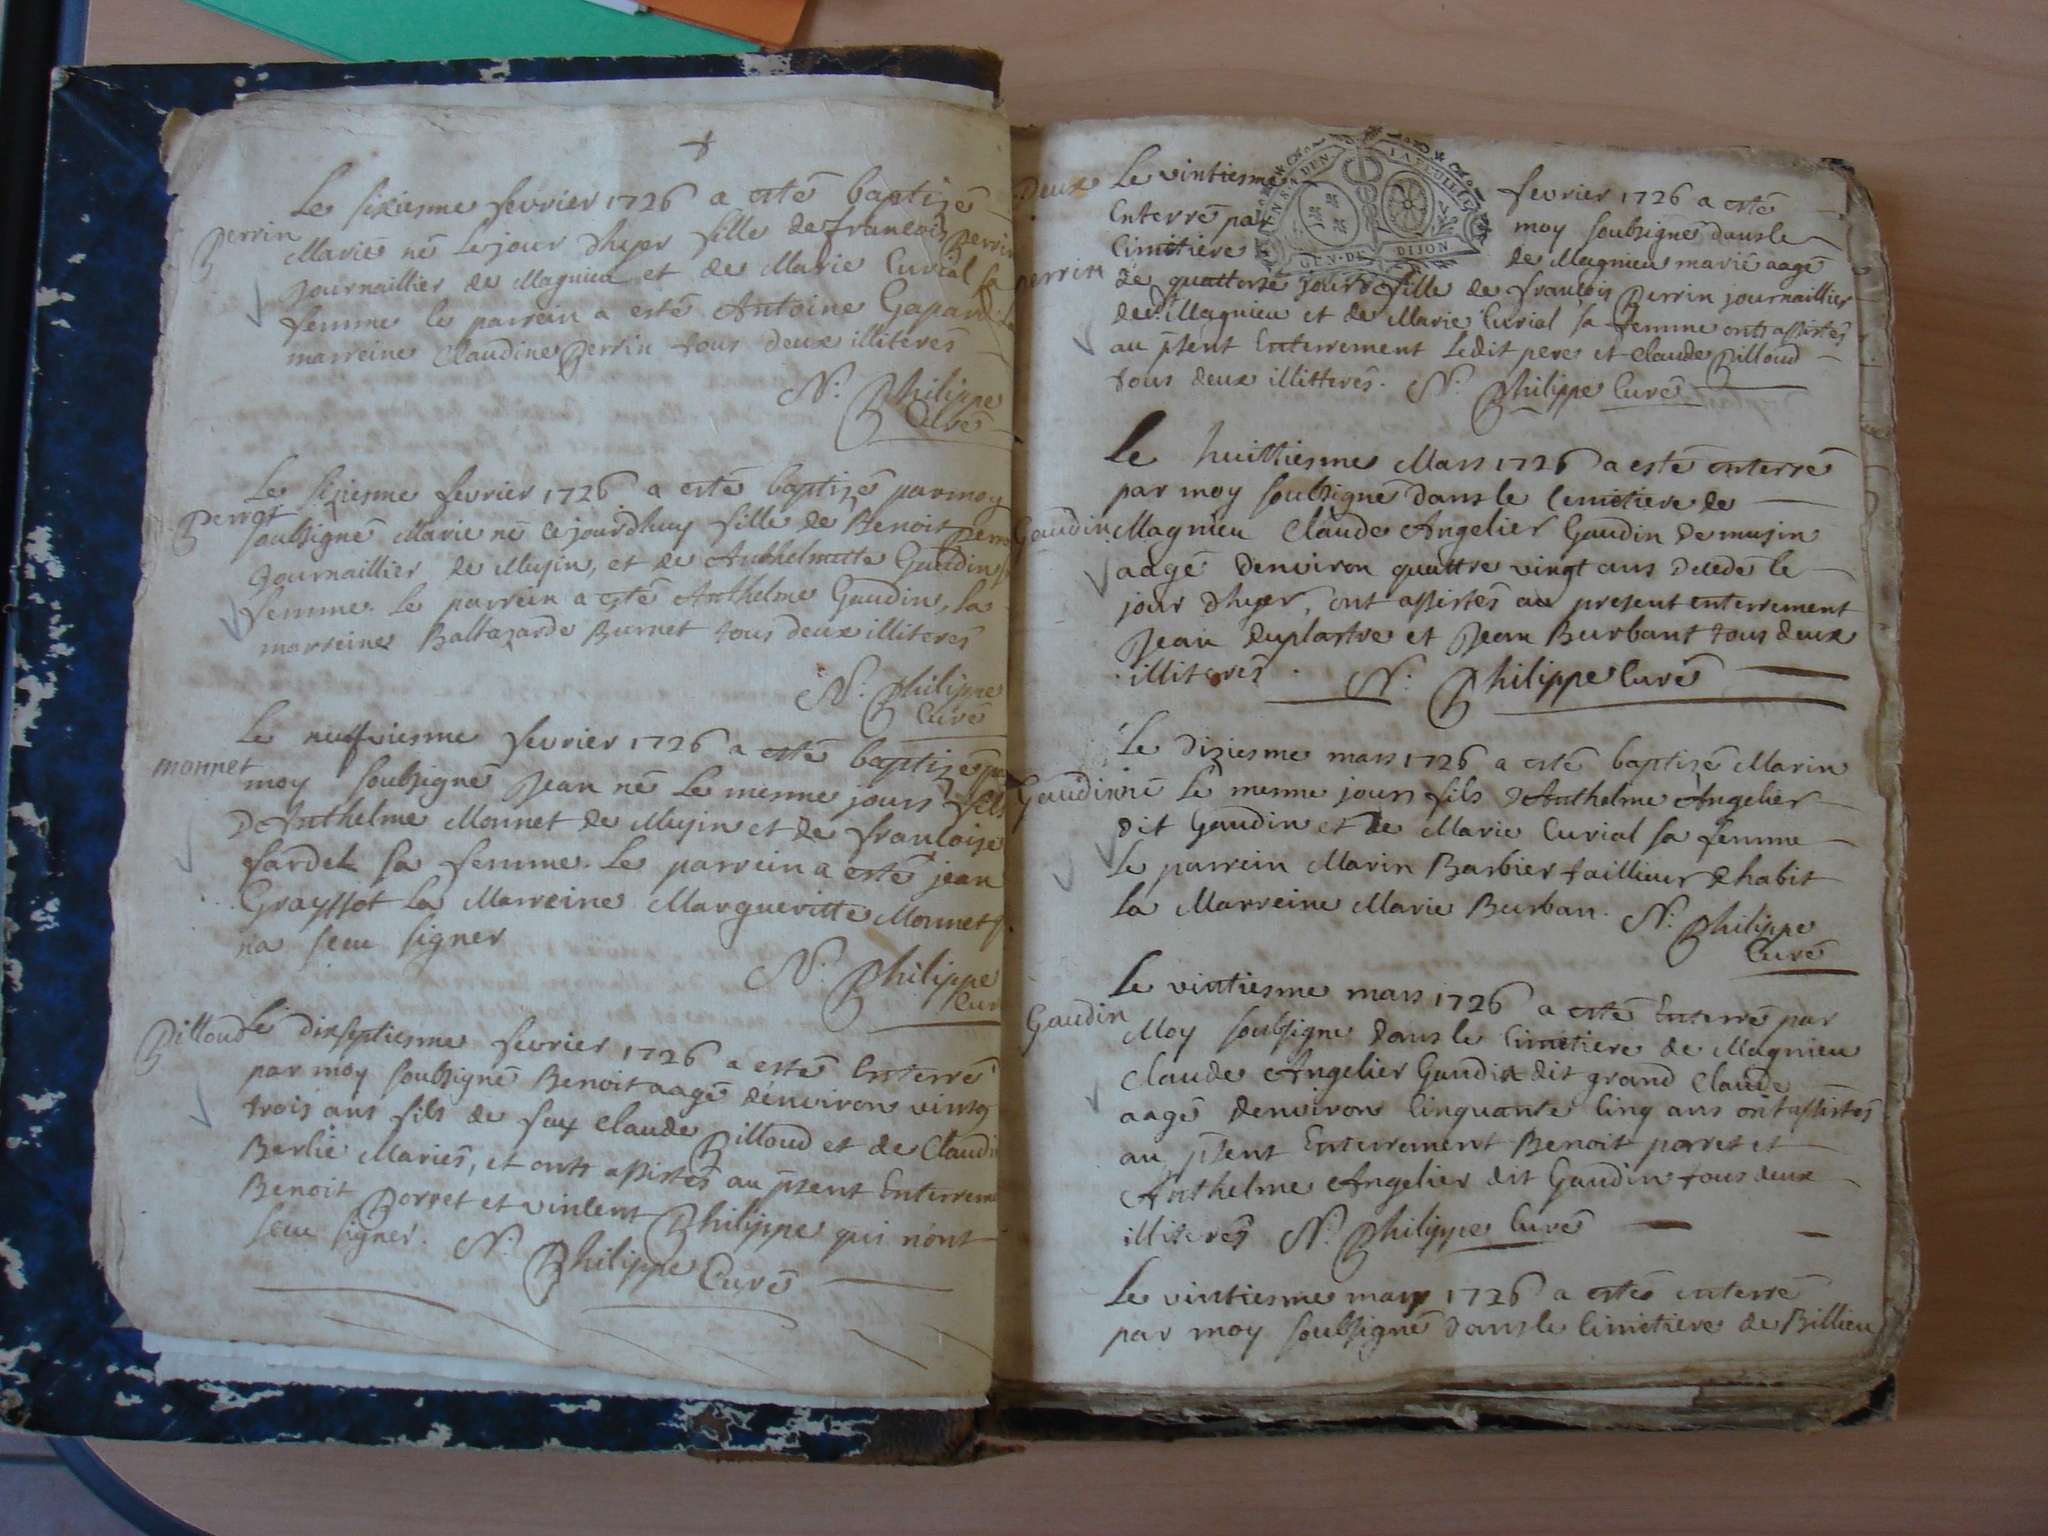 Le sixiesme fevrier 1726 a esté baptizé
Perrin
Marie né le jour d'hyer fille de francois Perrin
journaillier de Magnieu et de Marie Curial sa
femme le parrein a esté Antoine Gapand La
marreine Claudine Perrin tous deux illiteres
N. Philippe
Curé
Le sixiesme fevrier 1726 a esté baptizé par moy
Perret
soubsigné Marie né ce jourdhuy fille de Benoit
Journaillier de Musin, et de Anthelmette Gaudin
femme. Le parrein a esté Anthelme Gaudin, la
marreine Baltazarde Burnet tous deux illiteres
N. Philippe
Curé
Le neufviesme fevrier 1726 a esté baptizé
monnet
moy soubsigné Jean né Le mesme jours fils
D'Anthelme Monnet de Musin et de francoise
fardel sa femme. Le parrein a esté jean
Grayssot La Marreine Margueritte Monnet
na sceu signer
N. Philippe
Cur
Billoud
Le dixseptiesme fevrier 1726 a esté Enterré
par moy soubsigné Benoit aagé d'environ vingt
trois ans fils de feu Claude Billoud et de Claudi
Berlie Mariés, et ont assistés au psent Enterreme
Benoit Porret et vincent Philippe qui n'ont
sceu signer. N. Philippe Curé
Deux
Le vintiesme fevrier 1726 a esté
Enterré par moy soubsigné dans le
Cimitiere de Magnieu marie aagé
perrin
de quattorse jours fille de francois Perrin journaillier
de Magnieu et de Marie Curial sa femme ont assistés
au psent Enterrement Ledit pere et Claude Billoud
tous deux illitterés. N. Philippe Curé
GEN. DE DIJON
Le huittiesme Mars 1726 a esté enterré
par moy soubsigné dans le Cemitiere de
Gaudin
Magnieu Claude Angelier Gaudin de musin
aagé d'environ quattre vingt ans decede le
jour d'hyer, ont assistés au present enterrement
Jean Duplastre et Jean Burbant tous deux
illiterés. N. Philippe Curé
Le diziesme mars 1726 a esté baptizé Marin
Gaudin
né Le mesme jours fils d'Anthelme Angelier
dit Gaudin et de Marie Curial sa femme
Le parrein Marin Barbier taillieur d'habit
La Marreine Marie Burban. N. Philippe
Curé
Le vintiesme mars 1726 a esté Enterré par
Gaudin
Moy soubsigné dans le Cimetiere de Magnieu
Claude Angelier Gaudin dit grand Claude
aagé d'environ Cinquante Cinq ans ont assistés
au psent Enterrement Benoit porret et
Anthelme Angelier dit Gaudin tous deux
illiterés N. Philippe Curé
Le vintiesme mars 1726 a esté enterré
par moy soubsigné dans le Cimetiere de Billieu